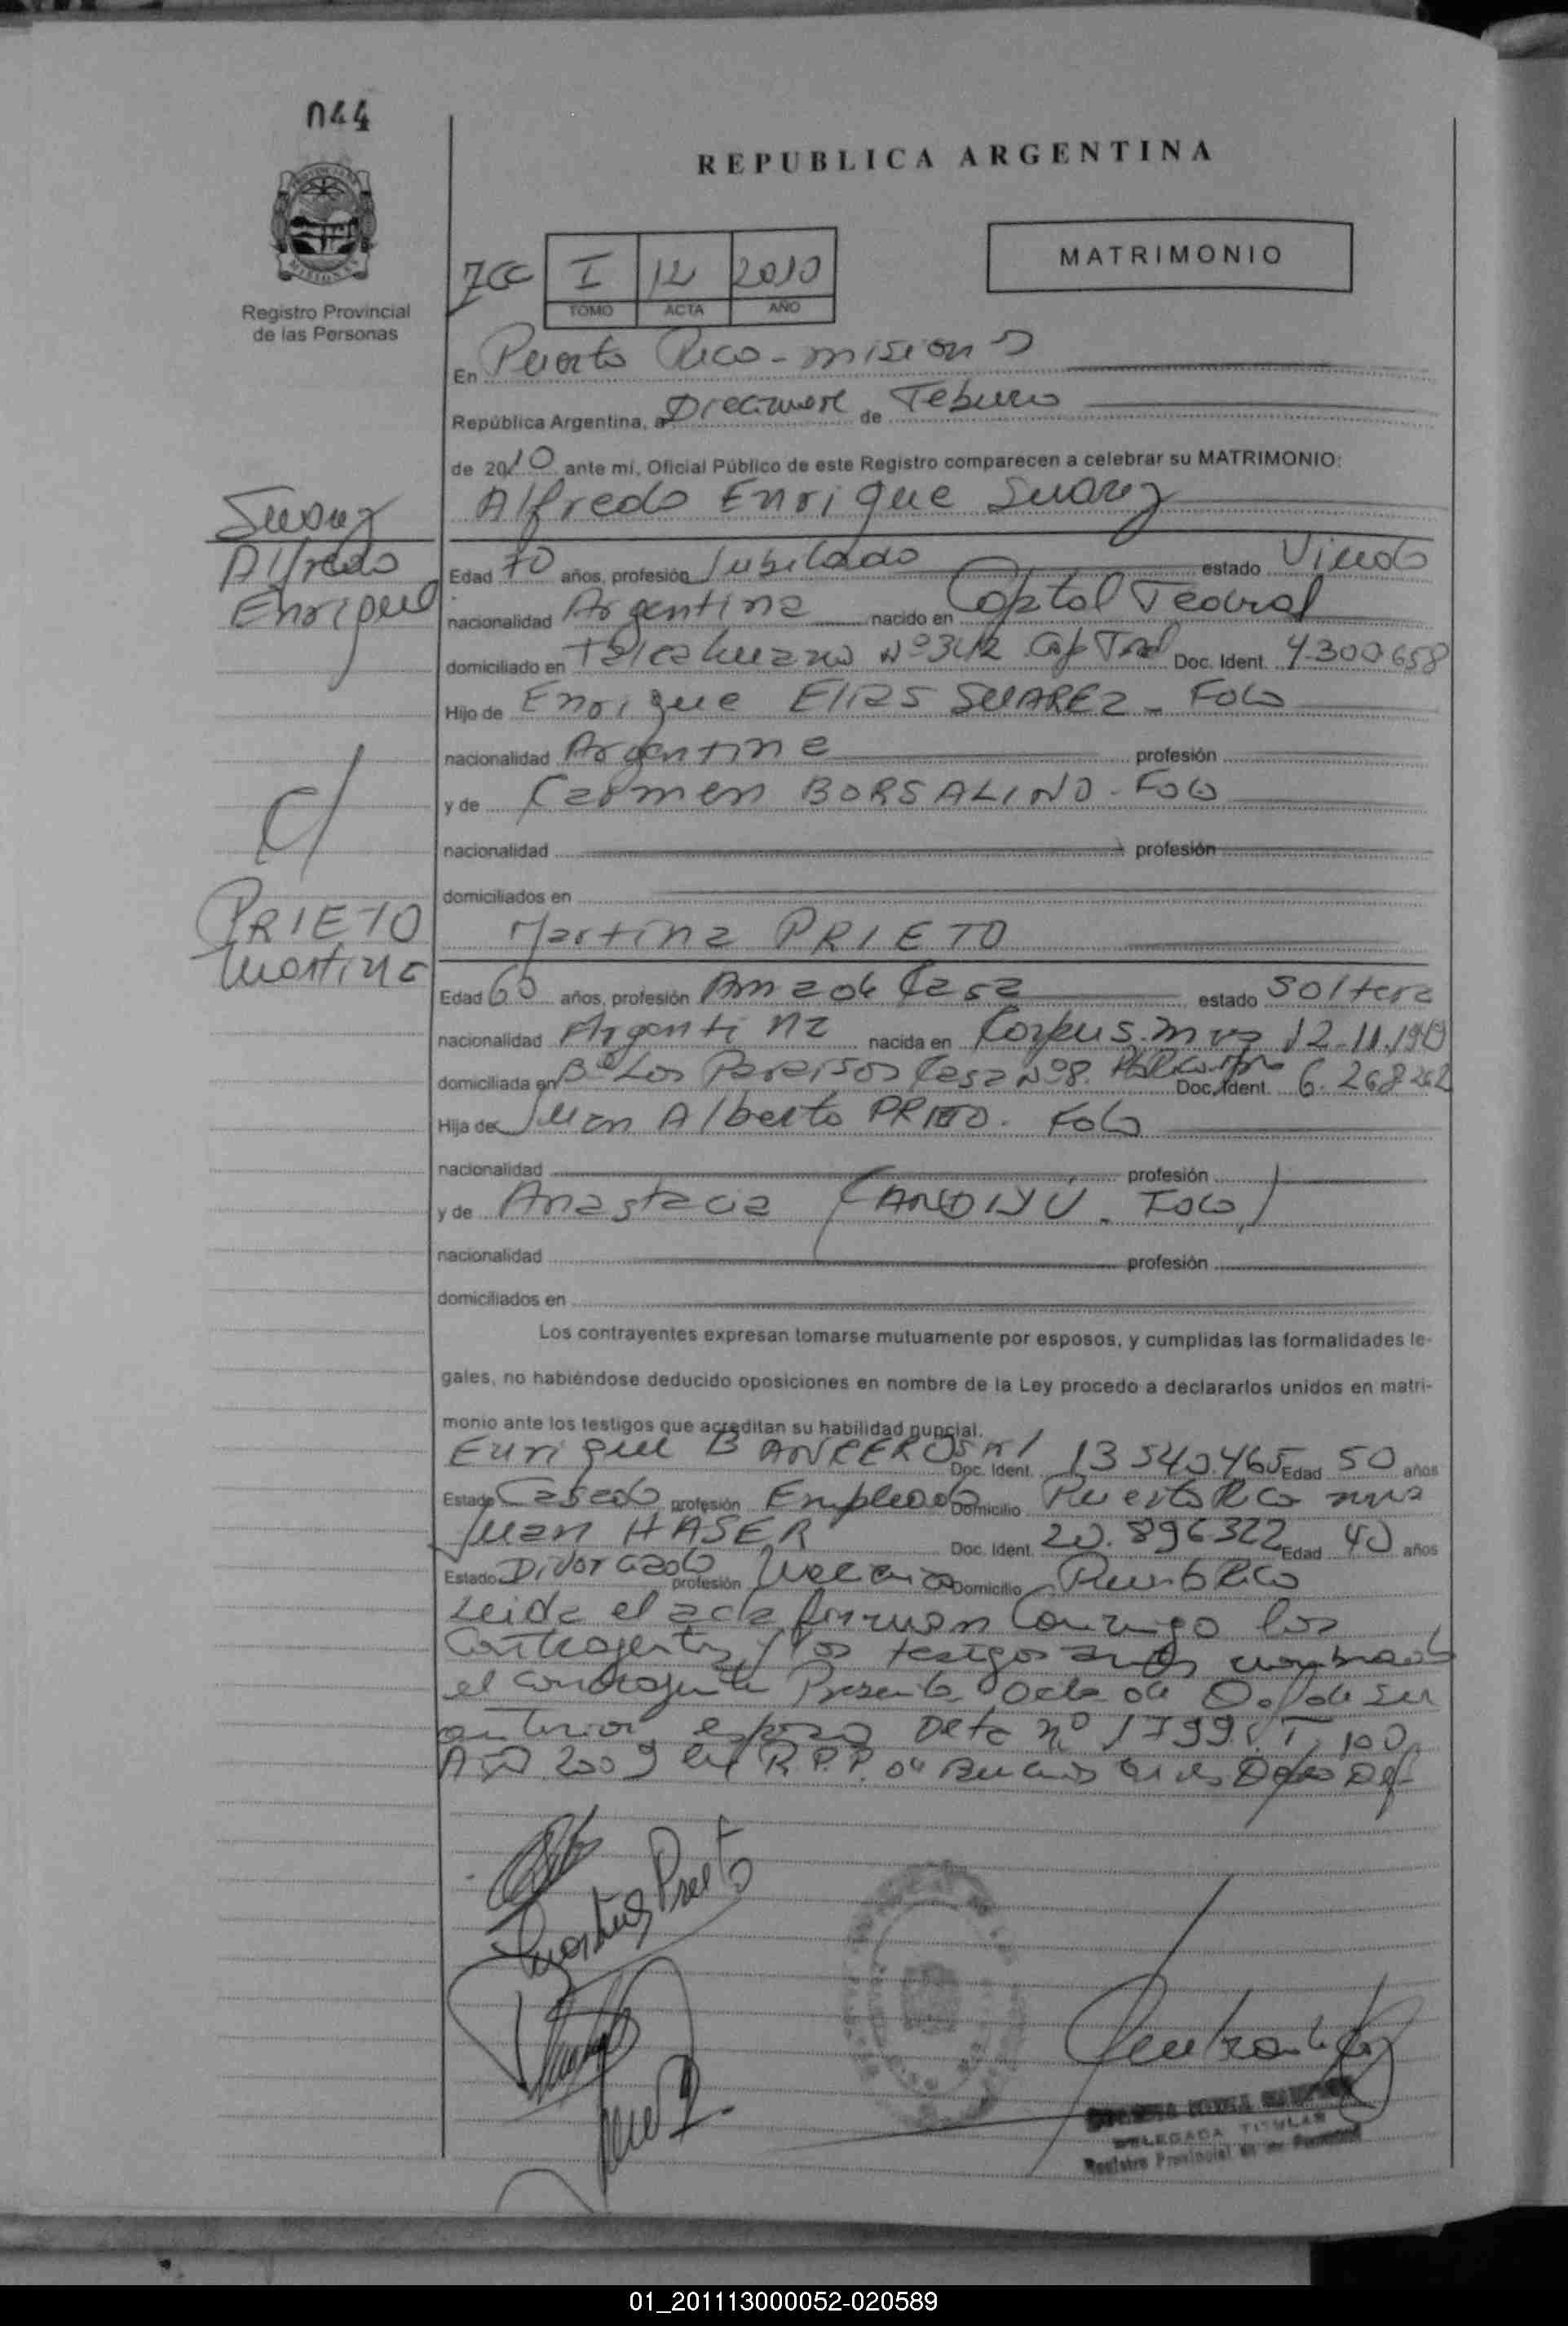 044
REPUBLICA ARGENTINA
MATRIMONIO
I 12 2010
TOMO ACTA AÑO
Registro Provincial
de las Personas
En Puerto Rico - mision
República Argentina, a de Febrero
de 2010 ante mí, Oficial Público de este Registro comparecen a celebrar su MATRIMONIO:
Alfredo Enrique Suarez
Suarez
Alfredo
Enrique
Edad 70 años, profesión Jubilado estado Viudo
nacionalidad Argentina nacido en Capital Federal
domiciliado en Talcahuano Nº 342 Doc. Ident. 4300658
Hijo de Enrique Elias SUAREZ - Fdo
nacionalidad Argentina profesión
y de Carmen BORSALINO - Fdo
c/
nacionalidad profesión
domiciliados en
PRIETO
Martina
Martina PRIETO
Edad 60 años, profesión Ama de Casa estado Soltera
nacionalidad Argentina nacida en Corpus. mns 12-11-1949
domiciliada en Bº Los Paraisos Casa Nº 8. Doc. Ident. 6.268262
Hija de Juan Alberto PRIETO. Fdo
nacionalidad profesión
y de Anastacia
nacionalidad profesión
domiciliados en
Los contrayentes expresan tomarse mutuamente por esposos, y cumplidas las formalidades le-
gales, no habiéndose deducido oposiciones en nombre de la Ley procedo a declararlos unidos en matri-
monio ante los testigos que acreditan su habilidad nupcial.
Enrique Doc. Ident. 13540.465 Edad 50 años
Estado Casado profesión Empleado Domicilio Puerto Rico mns
Juan HASER Doc. Ident. 20.896322 Edad 40 años
Estado Divorciado profesión Mecanico Domicilio Puerto Rico
Leida el acta firman Conmigo los
Contrayentes y los testigos antes nombrados
el contrayente Presenta acta de Def de su
anterior esposa acta nº 1799. T. 100
Año 2009 del R.P.P. de Buenos Aires
Martina Prieto
DELEGADA TITULAR
Registro Provincial de las Personas
01_201113000052-020589